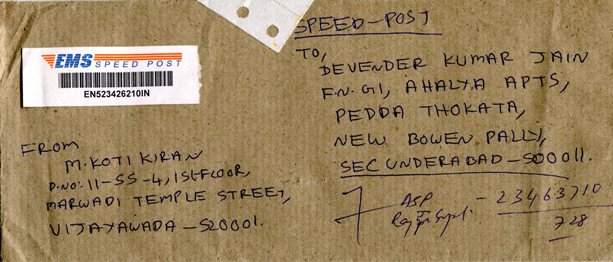 EMS
SPEED POST
EN523426210IN
SPEED-POST
TO,
DEVENDER KUMAR JAIN
F.N. G1, AHALYA APTS,
PEDDA THOKATA,
NEW BOWEN PALLY,
SECUNDERABAD-500011.
FROM
M.KOTI KIRAN
D.NO: 11-55-4, 1ST FLOOR,
MARWADI TEMPLE STREET,
VIJAYAWADA-520001.
ASP - 23463710
728